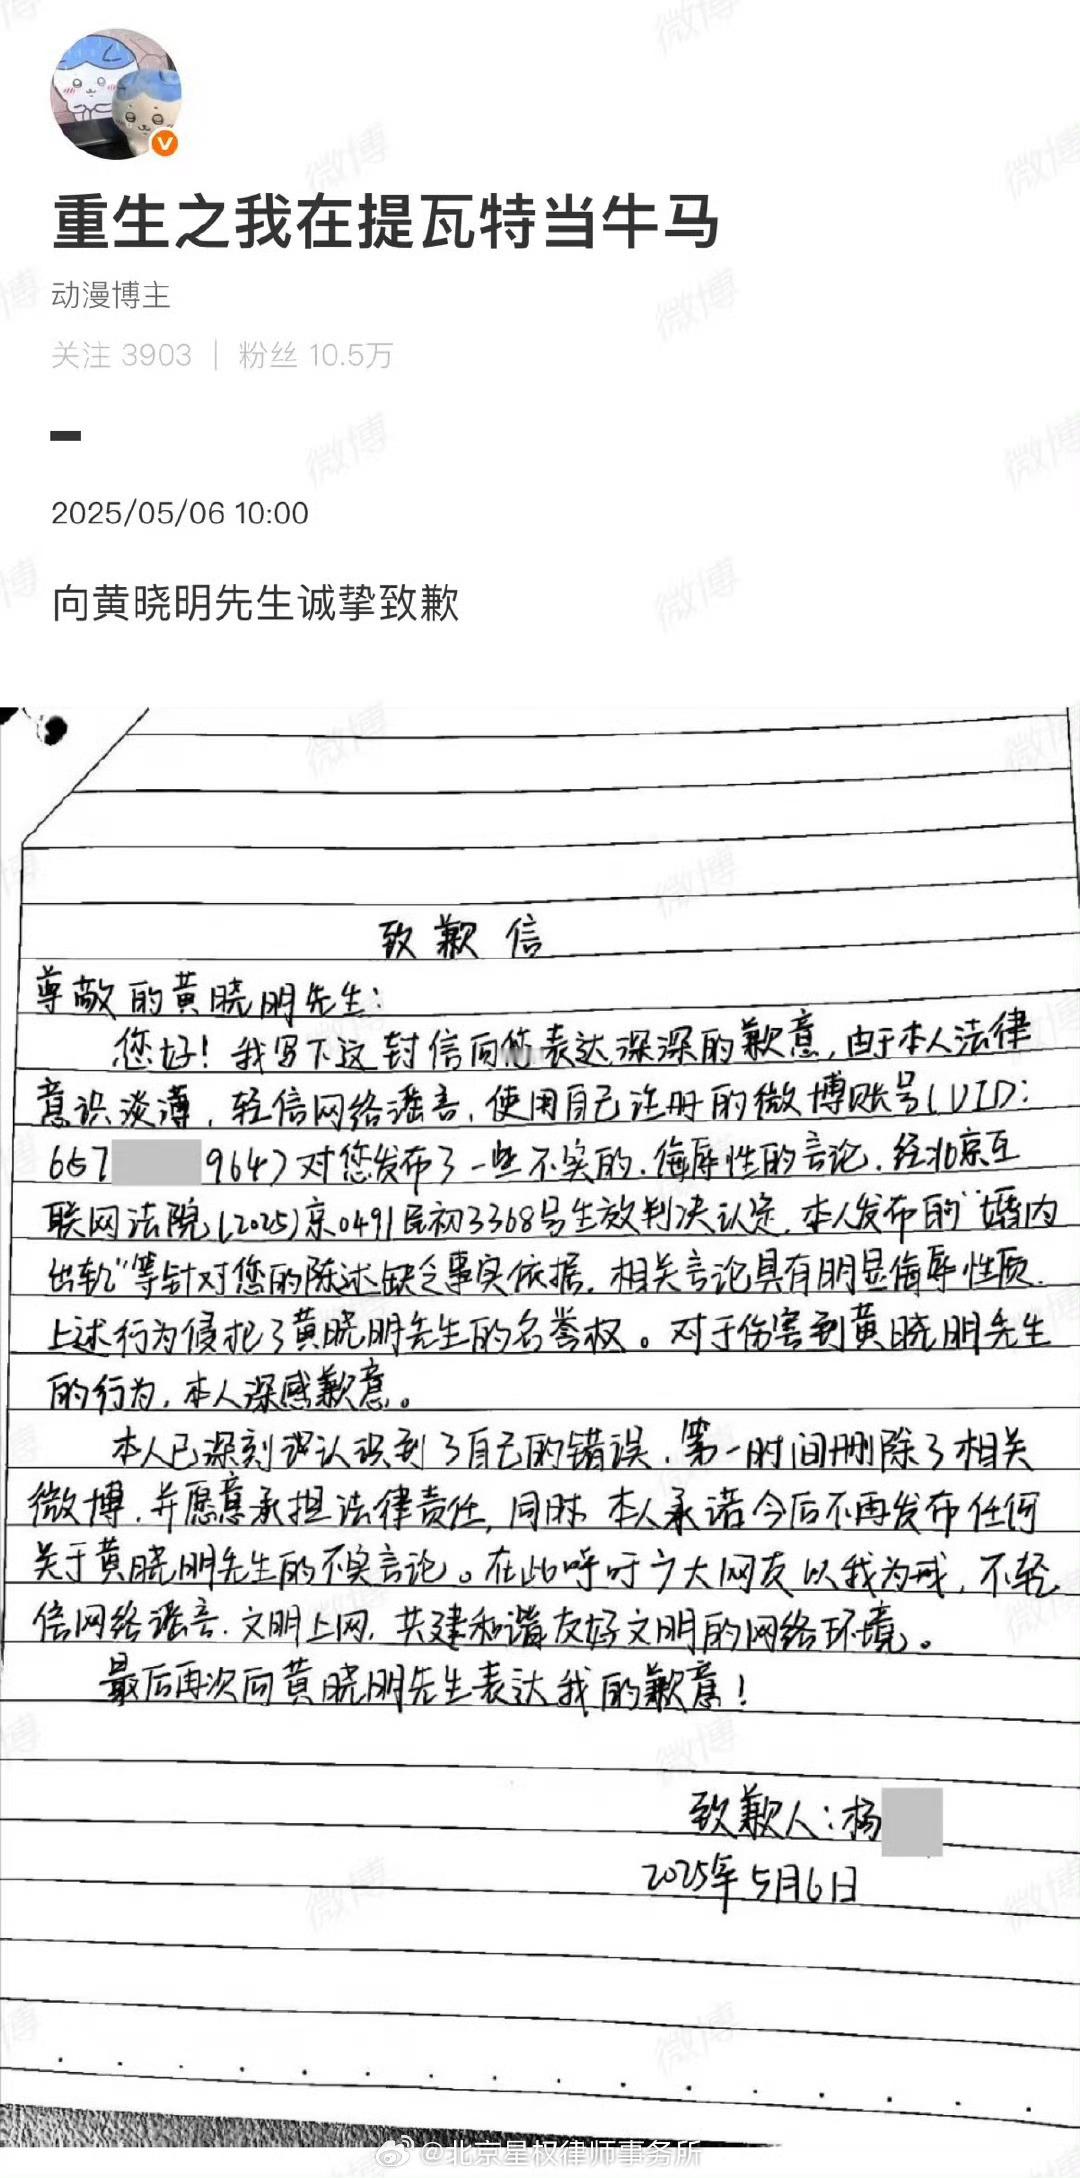 重生之我在提瓦特当牛马
动漫博主
关注 3903 | 粉丝 10.5万
2025/05/06 10:00
向黄晓明先生诚挚致歉
致歉信
尊敬的黄晓明先生：
您好！我写下这封信向您表达深深的歉意，由于本人法律
意识淡薄，轻信网络谣言，使用自己注册的微博账号（UID：
657 9647）对您发布了一些不实的、侮辱性的言论，经北京互
联网法院（2025）京0491民初3368号生效判决认定，本人发布的“婚内
出轨”等针对您的陈述缺乏事实依据，相关言论具有明显侮辱性质，
上述行为侵犯了黄晓明先生的名誉权。对于伤害到黄晓明先生
的行为，本人深感歉意。
本人已深刻认识到了自己的错误，第一时间删除了相关
微博，并愿意承担法律责任，同时，本人承诺今后不再发布任何
关于黄晓明先生的不实言论。在此呼吁广大网友以我为戒，不轻
信网络谣言，文明上网，共建和谐友好文明的网络环境。
最后再次向黄晓明先生表达我的歉意！
致歉人：杨
2025年5月6日
@北京星权律师事务所
微博